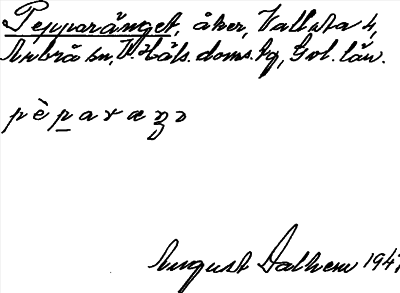 Pepparänget, åker, Vallsta 4,
Arbrå sn, V. Häls. doms. sg, Gvl. län.
August Dalhem 1947